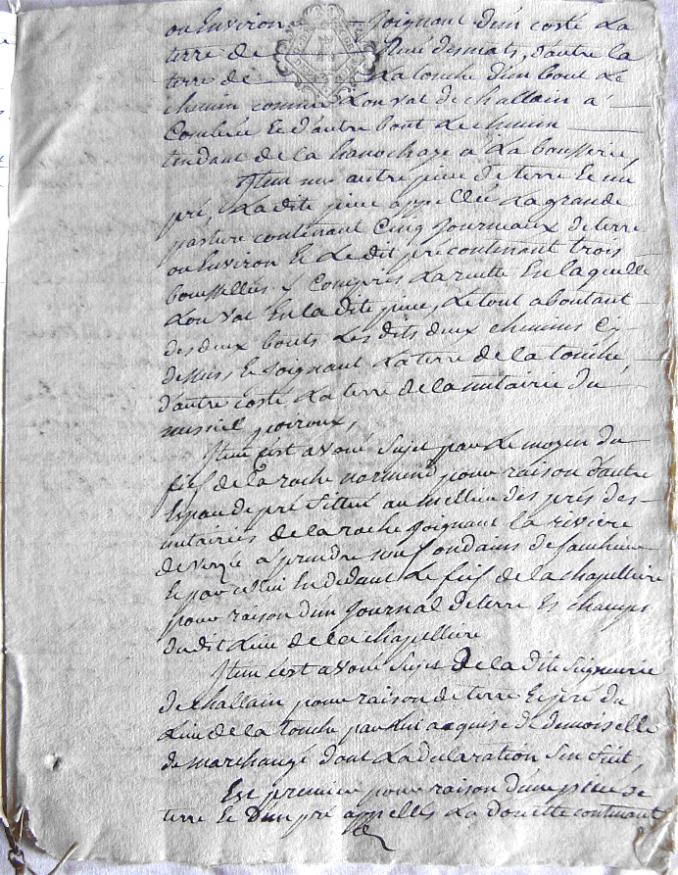 ou Environ Joignant d'un costé La
terre de René desmats, d'autre la
terre de La touche d'un bout Le
chemin comme L'on vat de challain a
Combrée Et d'autre bout Le chemin
tendant de la hanochaye a La bousserie
Item une autre piece de terre Et un
pré, La dite piece appellée La grande
pasture contenant Cinq Journeaux de terre
ou Environ Et Le dit pré contenant trois
bousselées y Compris La ruette En laquelle
L'on vat En la dite piece, Le tout aboutant
des deux bouts Les dits deux chemins Cy
dessus Et Joignant La terre de la touche,
d'autre costé La terre de la mutairie du
mesnil poiroux,
Item s'est avoué Sujet par Le moyen du
fief de la roche normand pour raison d'autre
Espau de pré Sittué au millieu des prés des
mutairies de la roche Joignant la riviere
de verzée a prendre neuf ondains de faucheur
Et par Cellui En dedant Le fief de la chapelliere
pour raison d'un Journal de terre Es champs
du dit Lieu de la chapelliere
Item s'est avoué Sujet de la dite Seigneurie
de challain pour raison de terre Et pré du
Lieu de la touche par lui acquise de demoiselle
de marchangé dont La declaration S'en Suit,
Est premier pour raison d'une piece de
terre Et D'un pré appellés La douette contenant